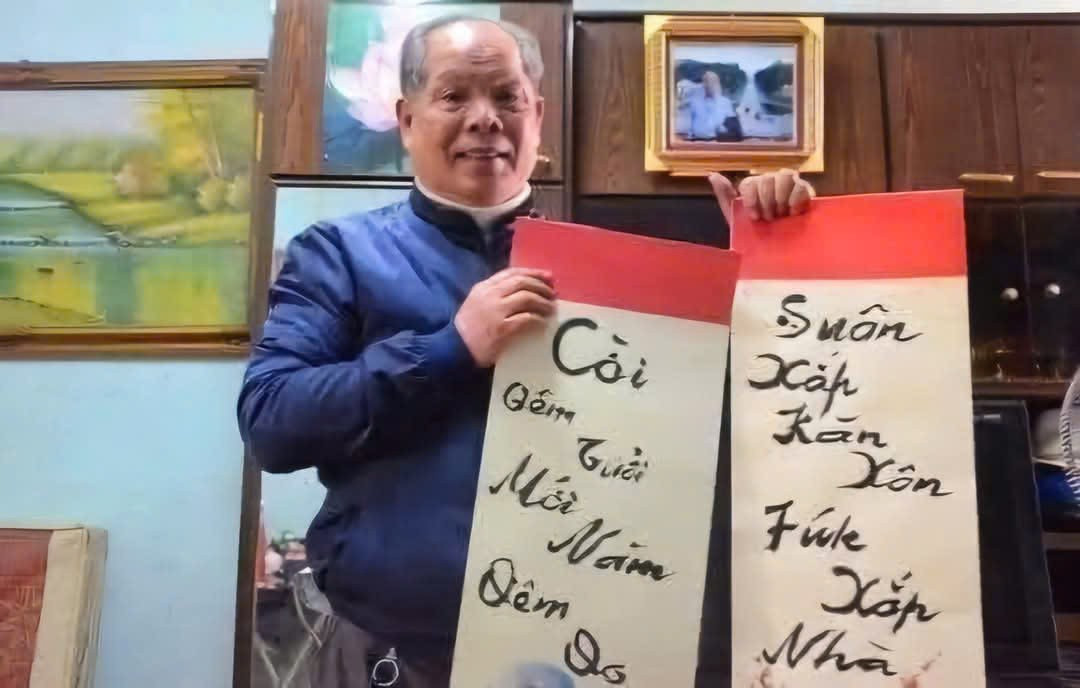 Cời
Qêm
Tuổi
Mới
Năm
Qêm
Qọ
Suân
Xắp
Kàn
Xôn
Fúk
Xắp
Nhà